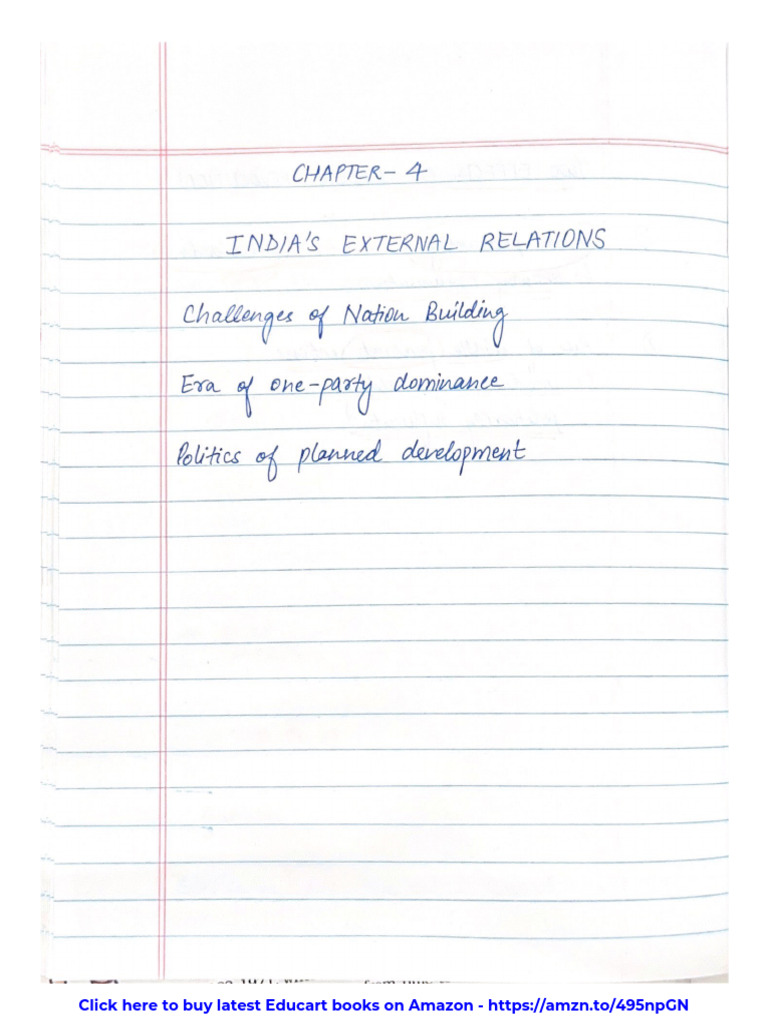 CHAPTER-4
INDIA'S EXTERNAL RELATIONS
Challenges of Nation Building
Era of one-party dominance
Politics of planned development
Click here to buy latest Educart books on Amazon - https://amzn.to/495npGN